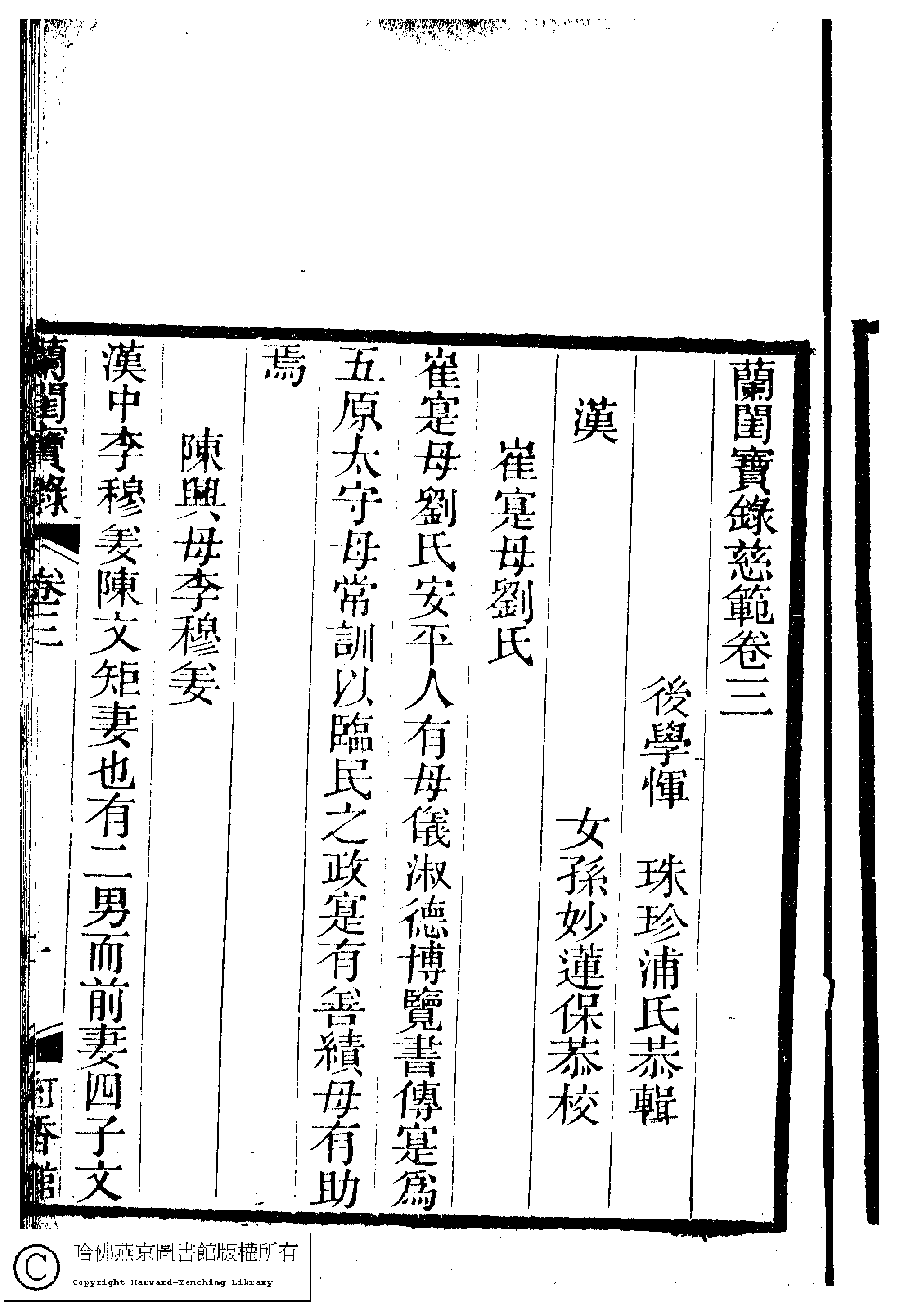 蘭閨寶錄慈範卷三
後學惲 珠珍浦氏恭輯
女孫妙蓮保恭校
漢
崔寔母劉氏
崔寔母劉氏安平人有母儀淑德博覽書傳寔爲
五原太守母常訓以臨民之政寔有善績母有助
焉
陳興母李穆姜
漢中李穆姜陳文矩妻也有二男而前妻四子文
蘭閨寶錄 卷三 一 紅香館
哈佛燕京圖書館版權所有
Copyright Harvard-Yenching Library